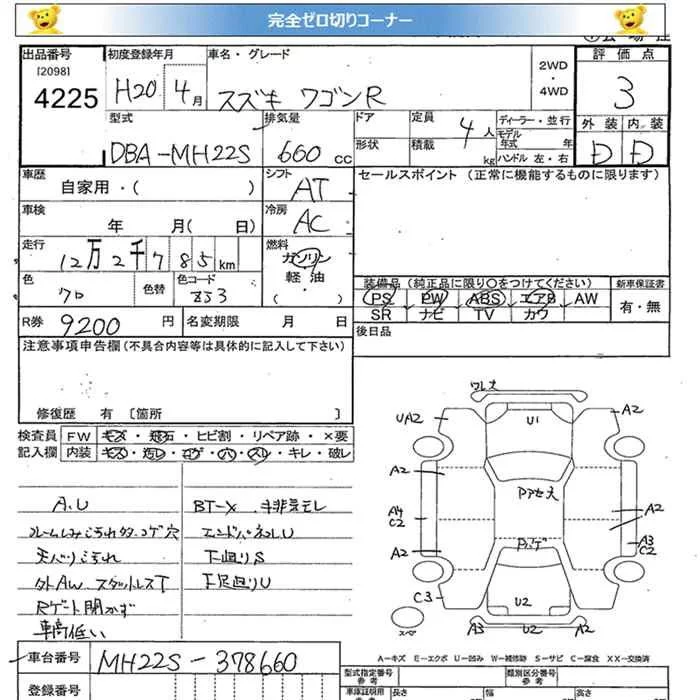 完全ゼロ切りコーナー
出品番号 初度登録年月 車名・グレード 2WD ・ 4WD 評価点
[2098]
4225 H20 4月 スズキ ワゴンR 3
型式 排気量 ドア 定員 4人 ディーラー・並行 外装 内装
モデル年式 年
DBA-MH22S 660cc 形状 積載 kg ハンドル 左・右 D D
車歴 シフト セールスポイント (正常に機能するものに限ります)
自家用・( ) AT
車検 冷房
年 月( 日) AC
走行 燃料
12万2千785km ガソリン
色 色替 色コード 軽油 装備品 (純正品に限り○をつけてください) 新車保証書
クロ ( ) PS PW ABS エアB AW 有・無
R券 9200円 名変期限 月 日 SR ナビ TV カワ
後日品
注意事項申告欄(不具合内容等は具体的に記入して下さい)
修復歴 有 [箇所 ]
検査員 FW キズ・飛石・ヒビ割・リペア跡・×要
記入欄 内装 キズ・汚レ・コゲ・穴・スレ・キレ・破レ
A.U
天バリこちれ
外AW スタットレスT
Rゲート開かず
車高低い
BT-X 排気モレ
エンドパネルU
下廻りS
下足廻りU
ワレ大
UA2 U1 A2
A2
A4 C2 A2
A3 C2
A2
C3 U2
A3 U2 A2
A-キズ E-エクボ U-凹み W-補修跡 S-サビ C-腐食 XX-交換済
車台番号 MH22S-378660
型式指定番号 類別区分番号
登録番号 車庫証明用参考 長さ 幅 高さ